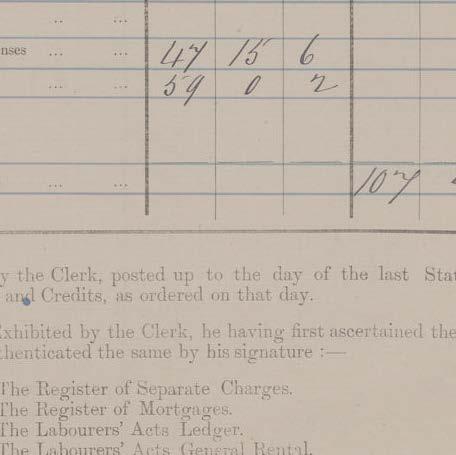 ... ...
nses ... ... 47 15 6
59 0 2
... ... ... 107
y the Clerk, posted up to the day of the last Stat
and Credits, as ordered on that day.
Exhibited by the Clerk, he having first ascertained the
thenticated the same by his signature :—
The Register of Separate Charges.
The Register of Mortgages.
The Labourers' Acts Ledger.
The Labourers' Acts General Rental.